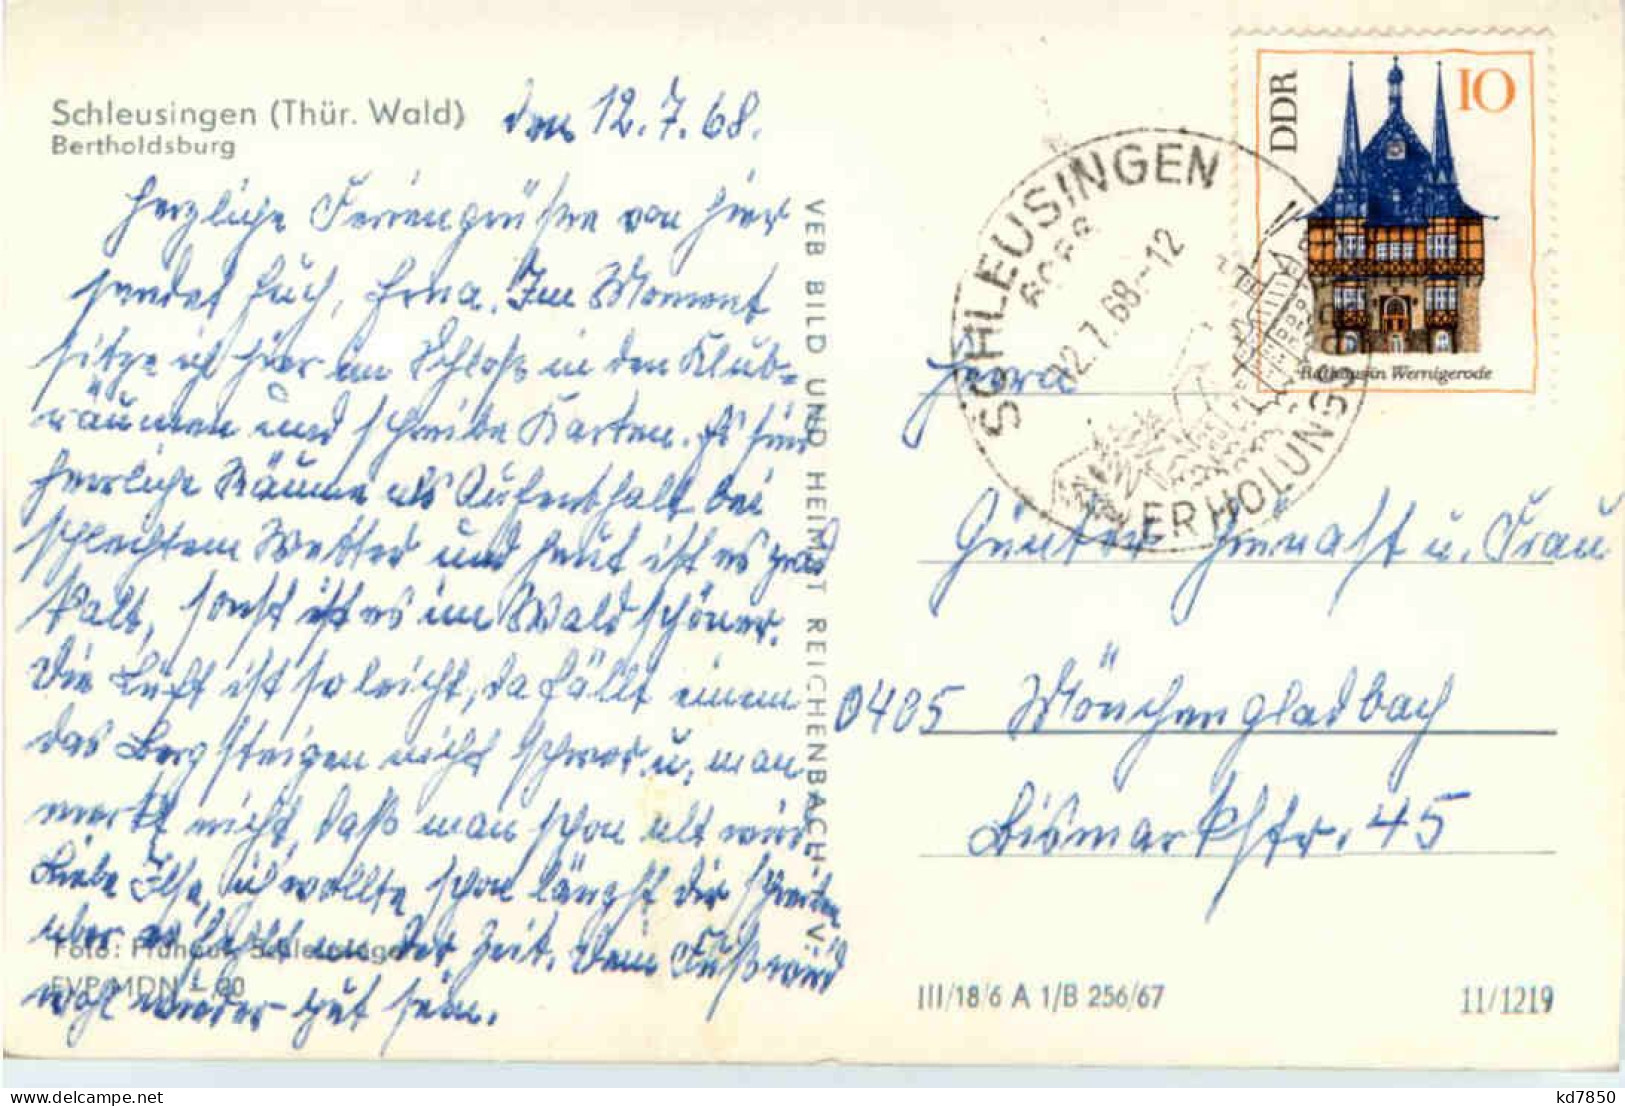 Schleusingen (Thür. Wald)
Bertholdsburg
den 12.7.68.
Herzliche Feriengrüße von hier
sendet Euch, Erna. Im Moment
sitze ich hier im Schloß in den Klub-
räumen und schreibe Karten. Es sind
herrliche Räume als Aufenthalt bei
schlechtem Wetter und heut ist es grad
kalt, sonst ist es im Wald schöner.
Die Luft ist so leicht, da fällt einem
das Bergsteigen nicht schwer u. man
merkt nicht, daß man schon alt wird.
Liebe Ilse, ich wollte schon längst Dir schreiben
aber es fehlt an der Zeit. Dein Fuß wird
wohl wieder gut sein.
Foto: Frühauf, Schleusingen
EVP MDN -,20
VEB BILD UND HEIMAT REICHENBACH i. V.
DDR
10
Rathaus in Wernigerode
SCHLEUSINGEN
12.7.68.-12
ERHOLUNGS
Herrn
Günter u. Frau
0405 Mönchengladbach
Bismarkstr. 45
III/18/6 A 1/B 256/67
11/1219
kd7850